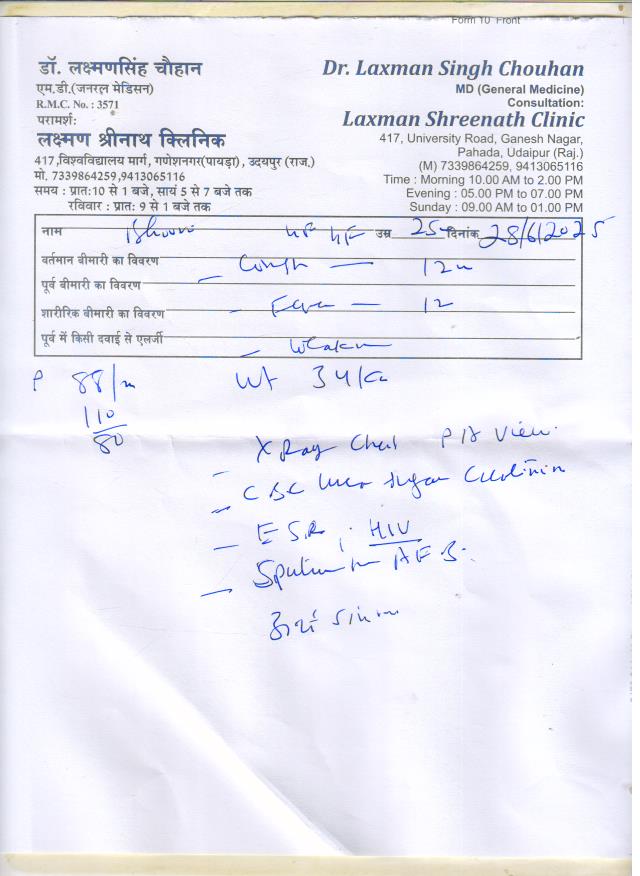 Form 10 Front
डॉ. लक्ष्मणसिंह चौहान
एम.डी.(जनरल मेडिसन)
R.M.C. No. : 3571
परामर्श:
लक्ष्मण श्रीनाथ क्लिनिक
417,विश्वविद्यालय मार्ग, गणेशनगर(पायड़ा), उदयपुर (राज.)
मो. 7339864259,9413065116
समय : प्रातः10 से 1 बजे, सायं 5 से 7 बजे तक
रविवार : प्रातः 9 से 1 बजे तक
Dr. Laxman Singh Chouhan
MD (General Medicine)
Consultation:
Laxman Shreenath Clinic
417, University Road, Ganesh Nagar,
Pahada, Udaipur (Raj.)
(M) 7339864259, 9413065116
Time : Morning 10.00 AM to 2.00 PM
Evening : 05.00 PM to 07.00 PM
Sunday : 09.00 AM to 01.00 PM
नाम उम्र 25 दिनांक 28/6/2025
वर्तमान बीमारी का विवरण Cough — 12
पूर्व बीमारी का विवरण
शारीरिक बीमारी का विवरण - Fever — 12
पूर्व में किसी दवाई से एलर्जी
P 88/m Wt 34/Kg
110/80
- X Ray Chest P/A View.
- CBC Urea Sugar Creatinin
- ESR, HIV
- Sputum for AFB.